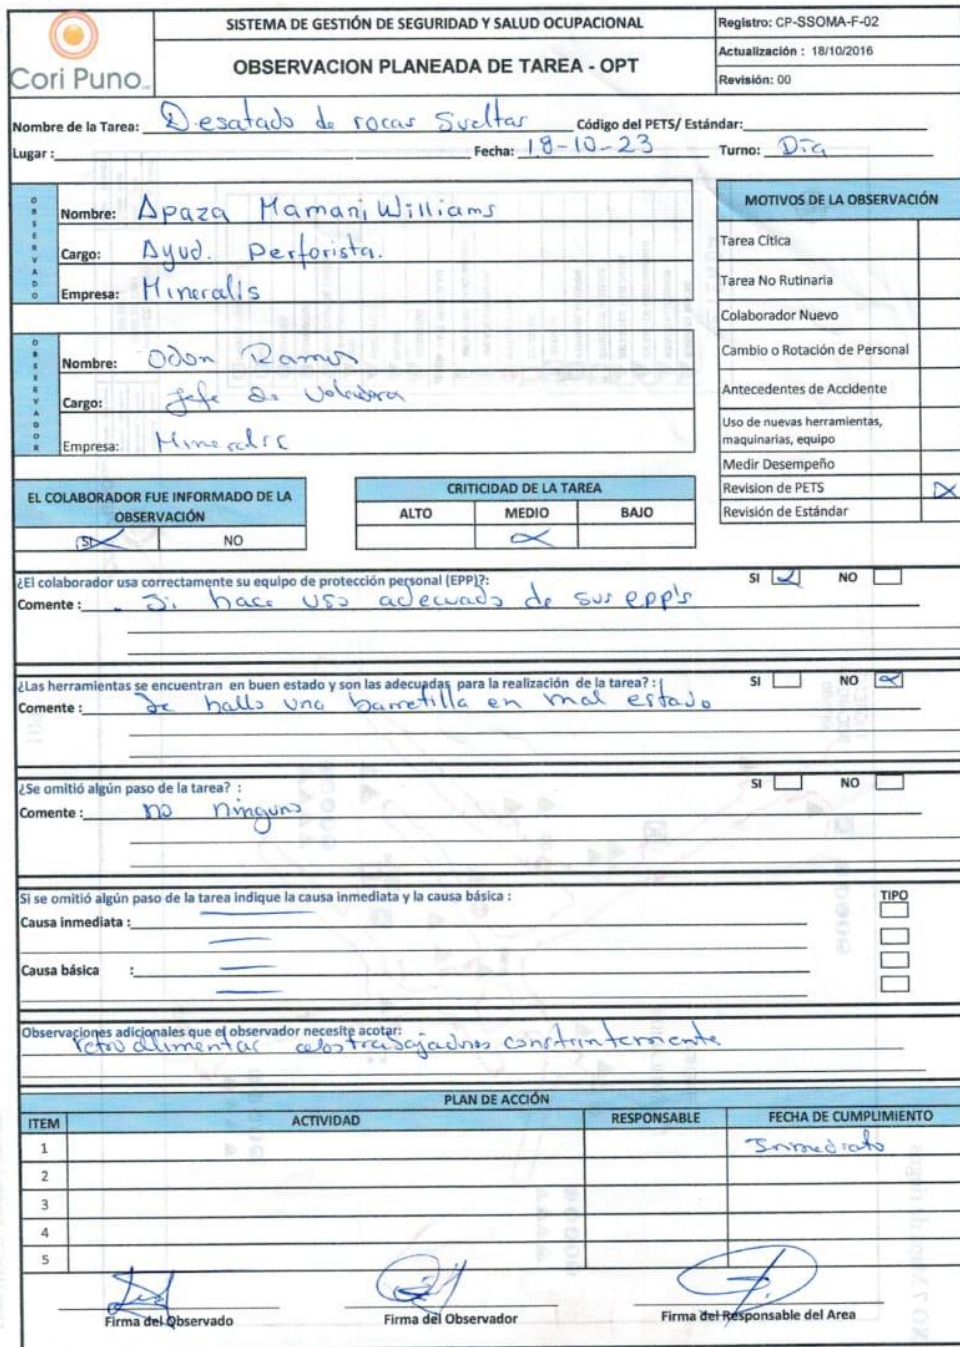 Cori Puno
SISTEMA DE GESTIÓN DE SEGURIDAD Y SALUD OCUPACIONAL
OBSERVACION PLANEADA DE TAREA - OPT
Registro: CP-SSOMA-F-02
Actualización : 18/10/2016
Revisión: 00
Nombre de la Tarea: Desatado de rocas Sueltas Código del PETS/ Estándar:
Lugar : Fecha: 18-10-23 Turno: Día
OBSERVADO
Nombre: Apaza Mamani Williams
Cargo: Ayud. Perforista.
Empresa: Mineralis
OBSERVADOR
Nombre: Odon Ramos
Cargo: Jefe de Voladura
Empresa: Mineralis
MOTIVOS DE LA OBSERVACIÓN
Tarea Cítica
Tarea No Rutinaria
Colaborador Nuevo
Cambio o Rotación de Personal
Antecedentes de Accidente
Uso de nuevas herramientas,
maquinarias, equipo
Medir Desempeño
Revision de PETS X
Revisión de Estándar
EL COLABORADOR FUE INFORMADO DE LA
OBSERVACIÓN
SI NO
CRITICIDAD DE LA TAREA
ALTO MEDIO BAJO
¿El colaborador usa correctamente su equipo de protección personal (EPP)?: SI NO
Comente : . Si hace uso adecuado de sus epp's
¿Las herramientas se encuentran en buen estado y son las adecuadas para la realización de la tarea? : SI NO
Comente : Se hallo una barretilla en mal estado
¿Se omitió algún paso de la tarea? : SI NO
Comente : no ninguno
Si se omitió algún paso de la tarea indique la causa inmediata y la causa básica : TIPO
Causa inmediata :
Causa básica :
Observaciones adicionales que el observador necesite acotar:
retroalimentar a los trabajadores constantemente
PLAN DE ACCIÓN
ITEM ACTIVIDAD RESPONSABLE FECHA DE CUMPLIMIENTO
1 Inmediato
2
3
4
5
Firma del Observado Firma del Observador Firma del Responsable del Area